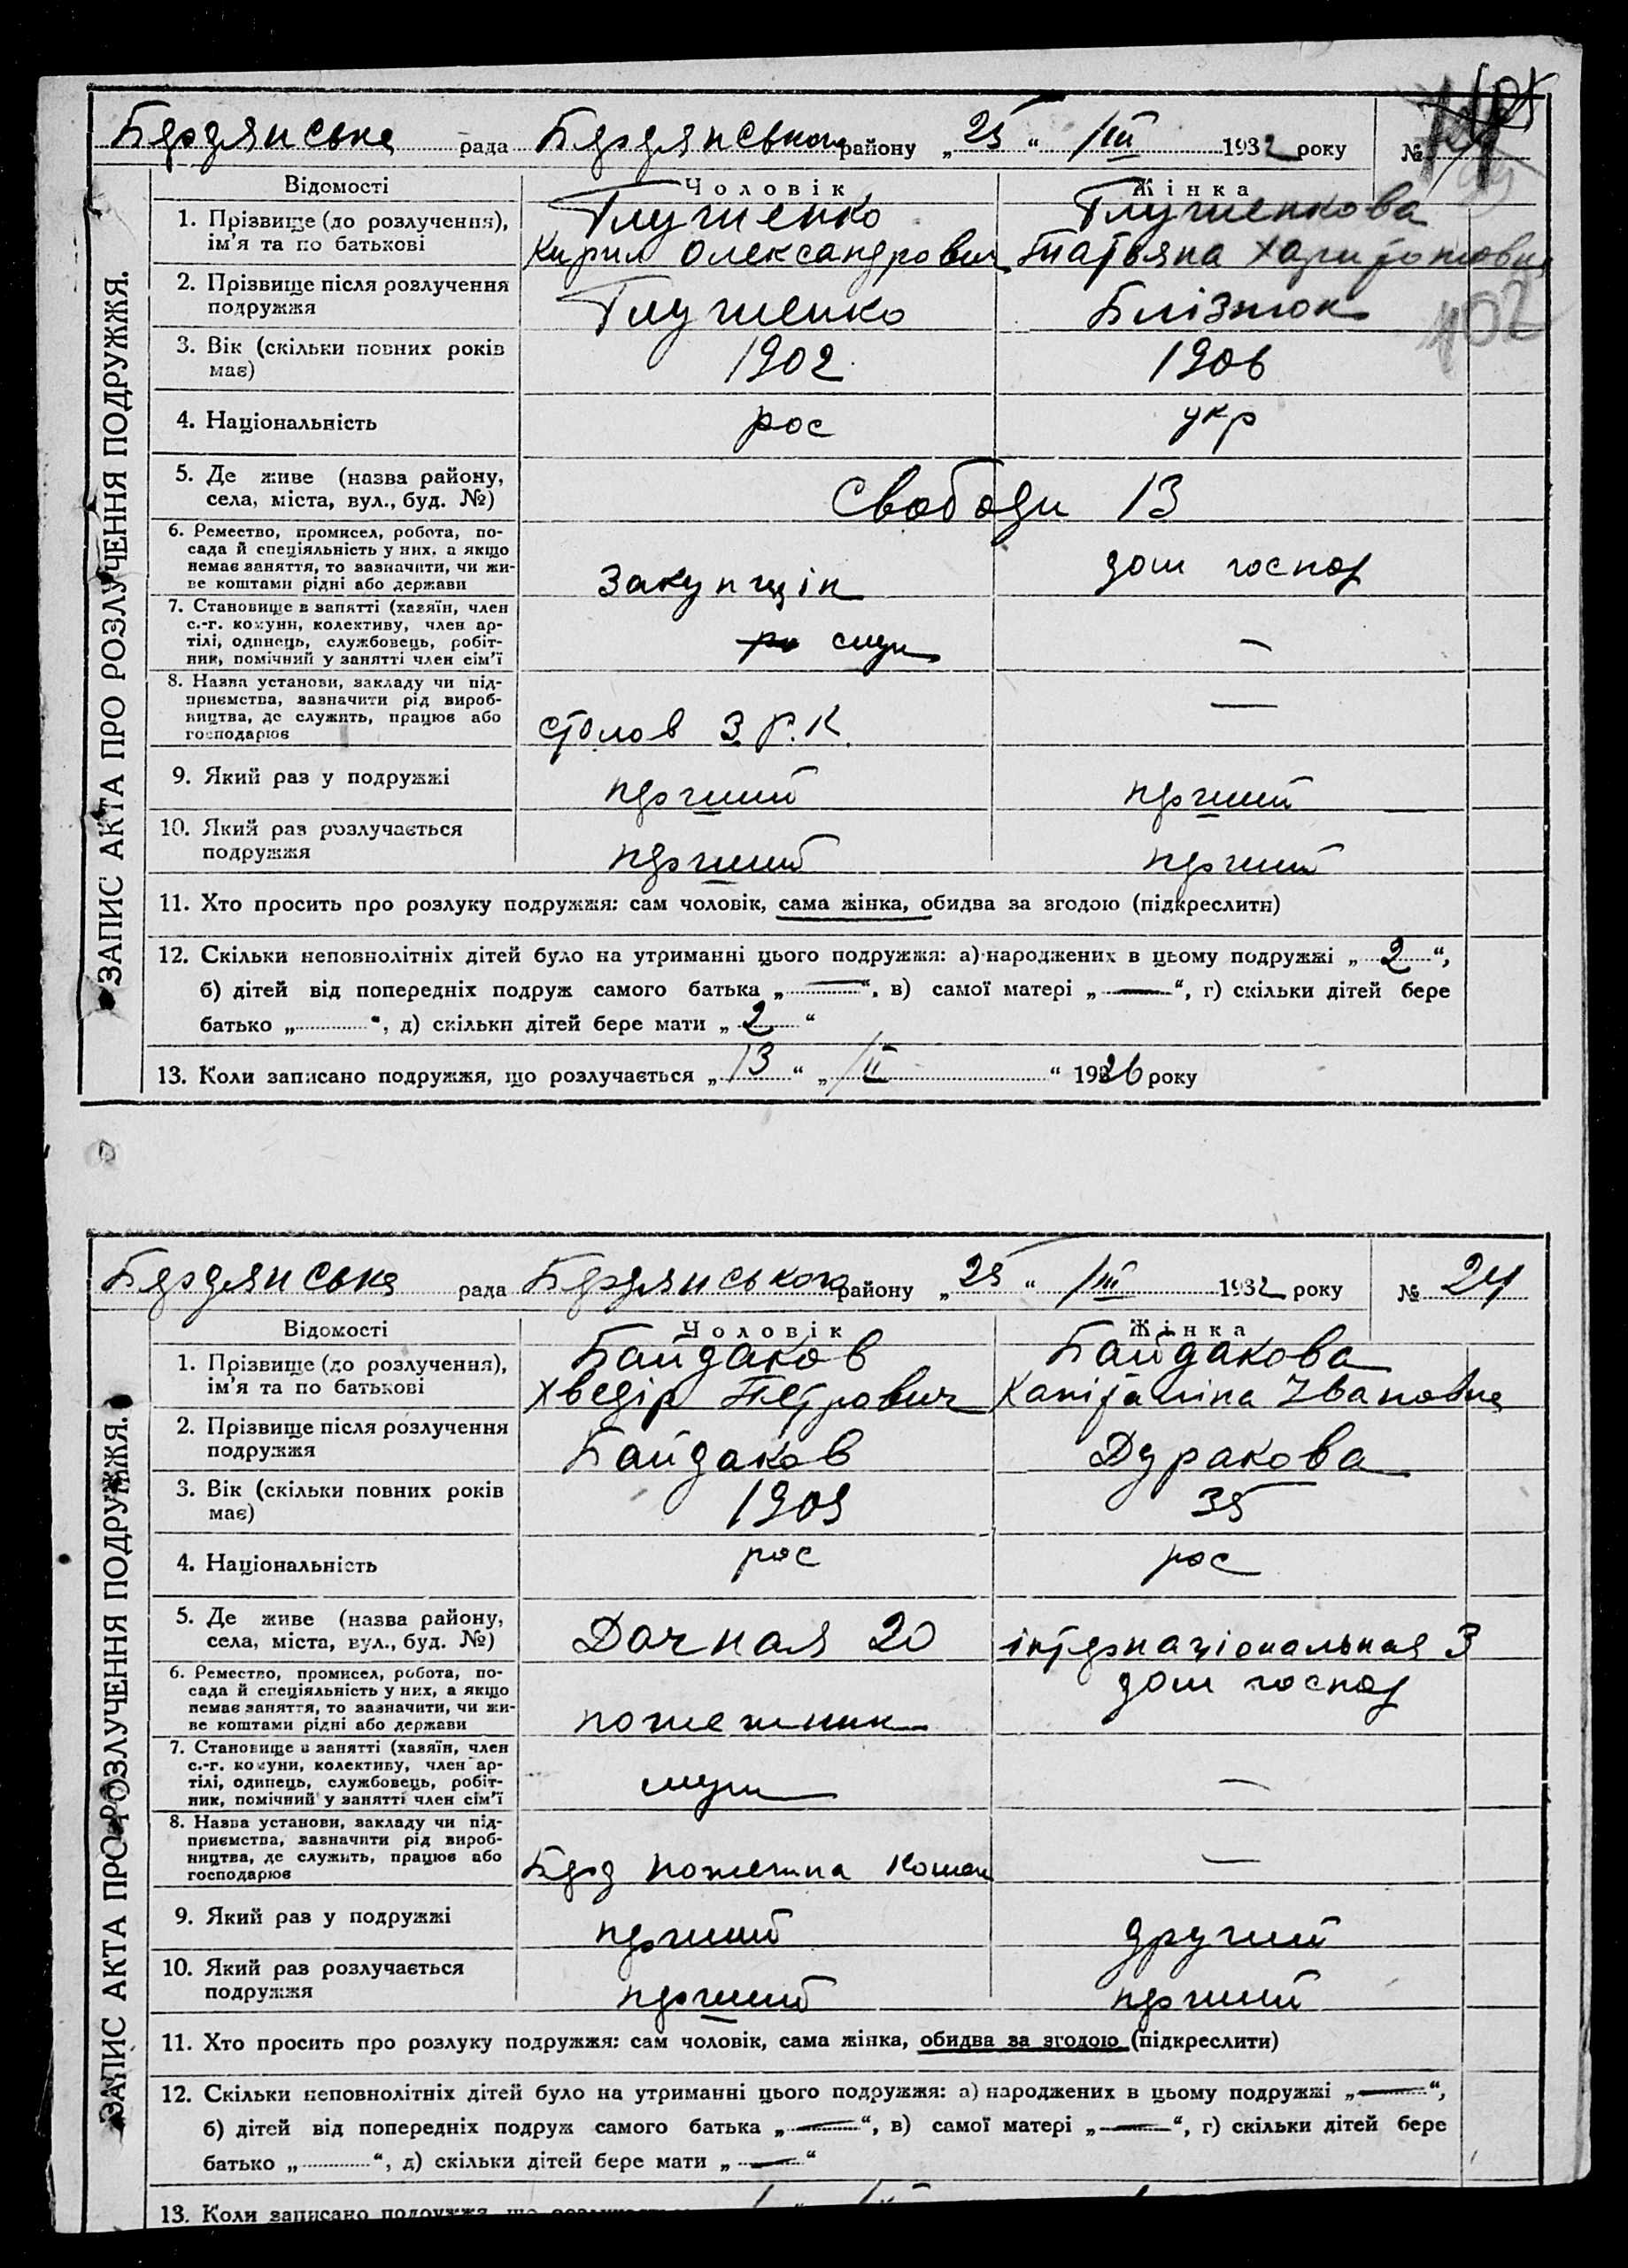 ЗАПИС АКТА ПРО РОЗЛУЧЕННЯ ПОДРУЖЖЯ.
Бердянська рада Бердянського району „25“ /III 1932 року №
Відомості Чоловік Жінка
1. Прізвище (до розлучення), Глушенко Глушенкова
ім'я та по батькові Кирил Олександрович Татьяна Харитоновна
2. Прізвище після розлучення
подружжя Глушенко Блізнюк
402
3. Вік (скільки повних років 1902 1906
має)
4. Національність рос укр
5. Де живе (назва району,
села, міста, вул., буд. №) Свободи 13
6. Ремество, промисел, робота, по-
сада й спеціяльність у них, а якщо
немає заняття, то зазначити, чи жи-
ве коштами рідні або держави Закупщік дом господ
7. Становище в занятті (хазяїн, член
с.-г. комуни, колективу, член ар-
тілі, одинець, службовець, робіт- служ —
ник, помічний у занятті член сім'ї
8. Назва установи, закладу чи під-
приємства, зазначити рід вироб- —
ництва, де служить, працює або
господарює столов З.Р.К.
9. Який раз у подружжі перший перший
10. Який раз розлучається
подружжя перший перший
11. Хто просить про розлуку подружжя: сам чоловік, сама жінка, обидва за згодою (підкреслити)
12. Скільки неповнолітніх дітей було на утриманні цього подружжя: а) народжених в цьому подружжі „2“,
б) дітей від попередніх подруж самого батька „—“, в) самої матері „—“, г) скільки дітей бере
батько „............“, д) скільки дітей бере мати „2“
13. Коли записано подружжя, що розлучається „13“ „/II“ 1926 року
ЗАПИС АКТА ПРО РОЗЛУЧЕННЯ ПОДРУЖЖЯ.
Бердянська рада Бердянського району „25“ /III 1932 року № 24
Відомості Чоловік Жінка
1. Прізвище (до розлучення), Байдаков Байдакова
ім'я та по батькові Хведір Петрович Капіталіна Івановна
2. Прізвище після розлучення
подружжя Байдаков Дуракова
3. Вік (скільки повних років 1909 35
має)
4. Національність рос рос
5. Де живе (назва району,
села, міста, вул., буд. №) Дачная 20 інтернаціональная 3
6. Ремество, промисел, робота, по- дом господ
сада й спеціяльність у них, а якщо
немає заняття, то зазначити, чи жи-
ве коштами рідні або держави пожежник
7. Становище в занятті (хазяїн, член
с.-г. комуни, колективу, член ар-
тілі, одинець, службовець, робіт- служ —
ник, помічний у занятті член сім'ї
8. Назва установи, закладу чи під-
приємства, зазначити рід вироб-
ництва, де служить, працює або —
господарює Берд пожежна коман
9. Який раз у подружжі перший другий
10. Який раз розлучається
подружжя перший перший
11. Хто просить про розлуку подружжя: сам чоловік, сама жінка, обидва за згодою (підкреслити)
12. Скільки неповнолітніх дітей було на утриманні цього подружжя: а) народжених в цьому подружжі „—“,
б) дітей від попередніх подруж самого батька „—“, в) самої матері „—“, г) скільки дітей бере
батько „............“, д) скільки дітей бере мати „—“
13. Коли записано подружжя, що